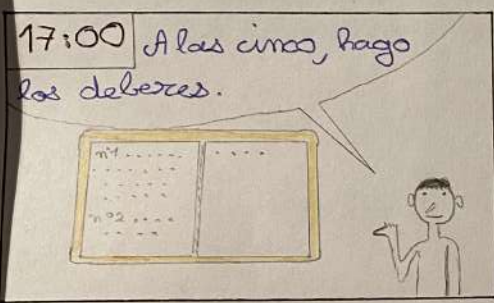 17:00 A las cinco, hago
los deberes.
nº1
nº2